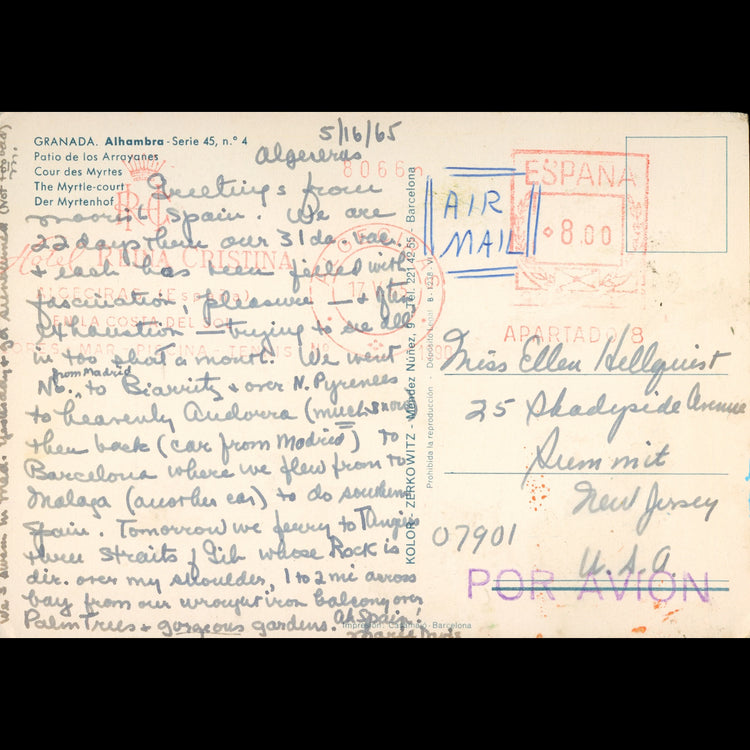 5/16/65
Algeceras
GRANADA. Alhambra - Serie 45, n.° 4
Patio de los Arrayanes
Cour des Myrtes
The Myrtle-court
Der Myrtenhof
Greetings from
moorish Spain. We are
22 days thru our 31 day vac.
& each has been filled with
fascination, pleasure — & often
exhaustion — trying to see all
in too short a month. We went
No. from Madrid to Biarritz & over N. Pyrenees
to heavenly Andorra (much snow)
then back (car from Madrid) to
Barcelona where we flew from to
Malaga (another car) to do southern
Spain. Tomorrow we ferry to Tangier
thru Straits of Gib whose Rock is
dir. over my shoulder, 1 to 2 mi across
bay from our wrought iron balcony over
Palm Trees & gorgeous gardens. Ah Spain!
We swam in Med. yesterday & got sunburned (Not too bad)
Hotel REINA CRISTINA
ALGECIRAS (España)
EN LA COSTA DEL SOL
MAR - PISCINA - TENNIS
KOLOR - ZERKOWITZ - Méndez Núñez, 9 - Tel. 221 42 55 - Barcelona
Prohibida la reproducción - Depósito Legal B - 1238 - VI
Impresión: Barcelona
8066
AIR
MAIL
ESPAÑA
8.00
APARTADO 8
Miss Ellen Hellquist
25 Shadyside Avenue
Summit
New Jersey
07901
U.S.A.
POR AVION